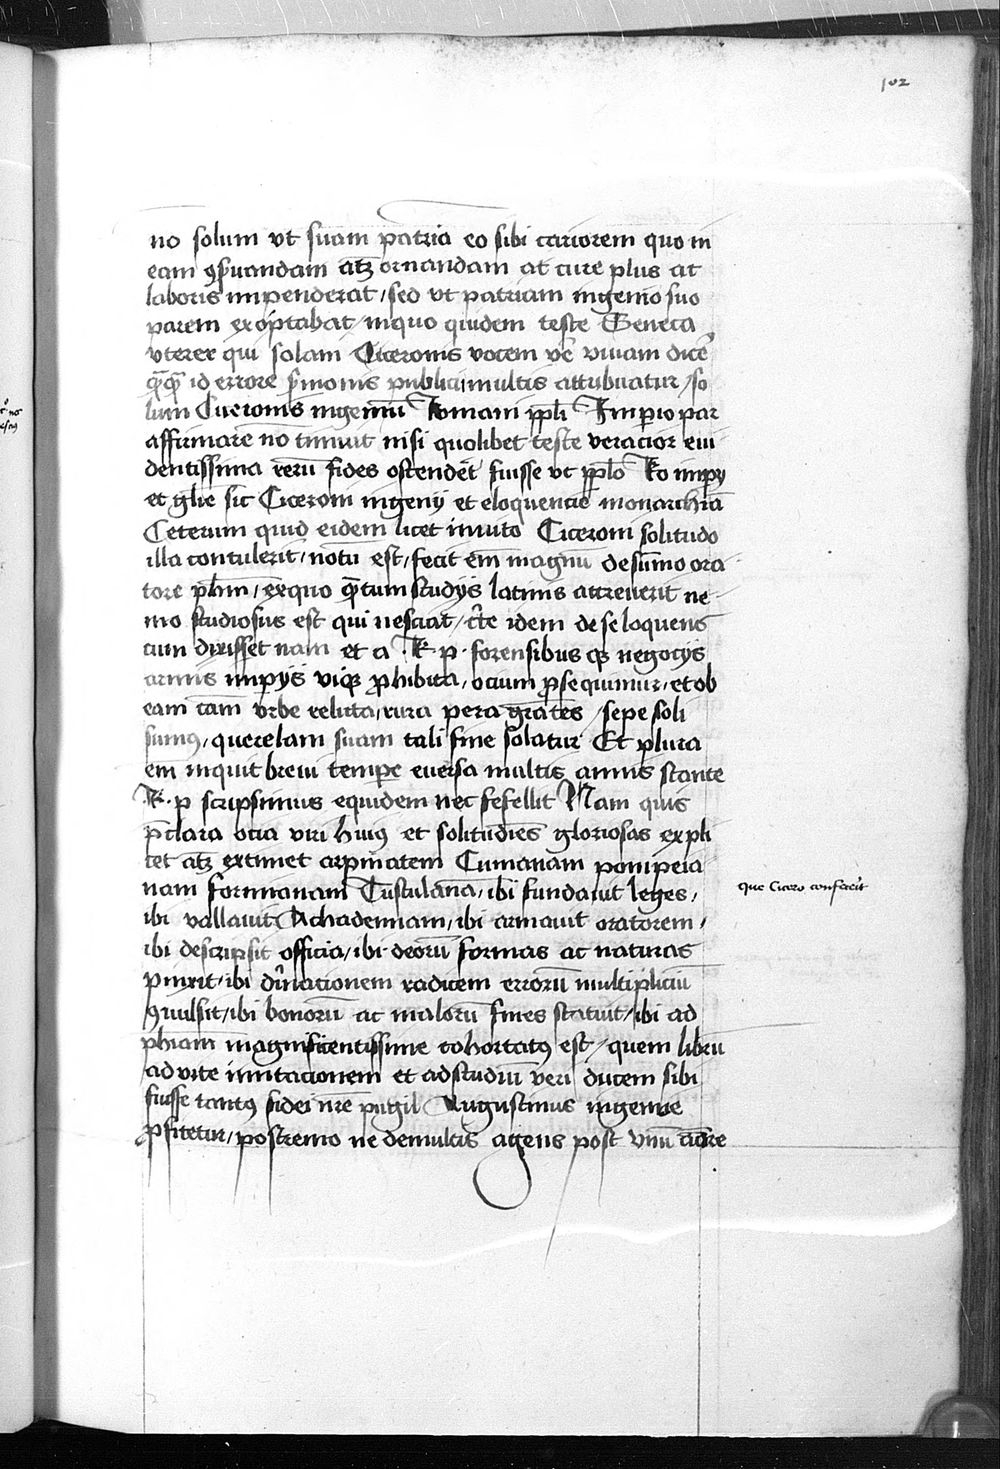 102
nō solum vt suam patria eo sibi cariorem quo in
eam ꝯẜuandam atqꝫ ornandam at cure plus at
laboris impenderat / sed vt patriam ingenio suo
parem exoptabat inquo quidem teste Seneca
vterer qui solam Ciceronis vocem vē viuam dicē
q̄qꝫ id errore ẜmonis publici multis attribuatur / so
lum Ciceronis ingeniū Romani ppli Imperio par
affirmare nō timuit nisi quolibet teste veracior eui
dentissima rerū fides ostenderet fuisse vt pplo Ro impij
et glie sic Ciceroni ingenij et eloquencie monarchiā
Ceterum quid eidem licet inuito Ciceroni solitudo
illa contulerit / notū est / fecit em̄ magnū de sūmo ora
tore phm̄ / exquo q̄tum studijs latinis attreuerit ne
mo studiosus est qui nesciat / c̄te idem de se loquens
cum dixisset nam et a R p forensibus qꝫ negocijs
armis impijs viqꝫ ꝓhibita / ocium ꝓsequimur / et ob
eam cām vrbe relicta / rura peragrātes / sepe soli
sumꝰ / querelam suam tali fine solatur Et plura
em̄ inquit breui tempe euersa multis annis stante
R p scripsimus equidem nec fefellit Nam quis
p̄clara ocia viri huiꝰ et solitudīes gloriosas expli
cet atqꝫ extimet arpinatem Cumanam pompeia
nam formianam Tusculanā / ibi fundauit leges /
ibi vallauit Achademiam / ibi armauit oratorem /
ibi descripsit officia / ibi deorū formas ac naturas
pinxit / ibi diuinacionem radicem errorū multipliciū
ꝯuulsit / ibi bonorū ac malorū fines statuit / ibi ad
phiam magnificentissime cohortatꝰ est / quem librū
ad vite imitacionem et ad studiū veri ducem sibi
fuisse tantꝰ fidei nr̄e pugil Augustinus ingenue
ꝓfitetur / postremo ne de multis agens post vnū ciuore
que Cicero confecit